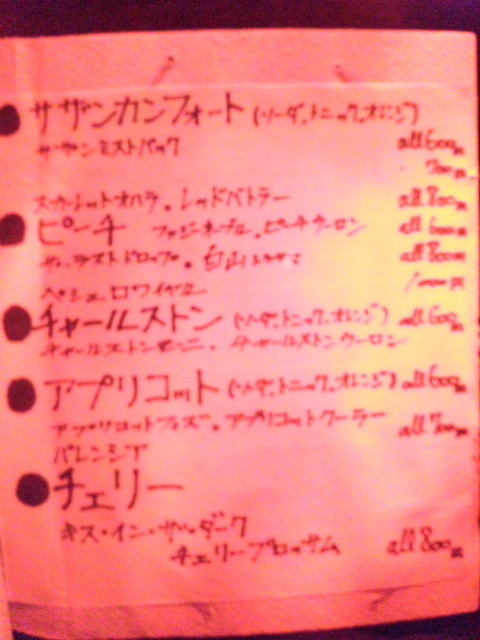 サザンカンフォート (ソーダ、トニック、オレンジ)
サザンミストパック all 600円
700円
スカーレットオハラ・レッドバトラー all 800円
ピーチ ファジーネーブル、ピーチウーロン all 600円
ザ・ラストドロップ・白山 all 800円
ペシェロワイヤル 円
チャールストン (ソーダ、トニック、オレンジ) all 600円
チャールストン チャールストンウーロン
アプリコット (ソーダ、トニック、オレンジ) all 600円
アプリコットフィズ・アプリコットクーラー all 700円
バレンシア
チェリー
キス・イン・ザ・ダーク
チェリーブロッサム all 800円